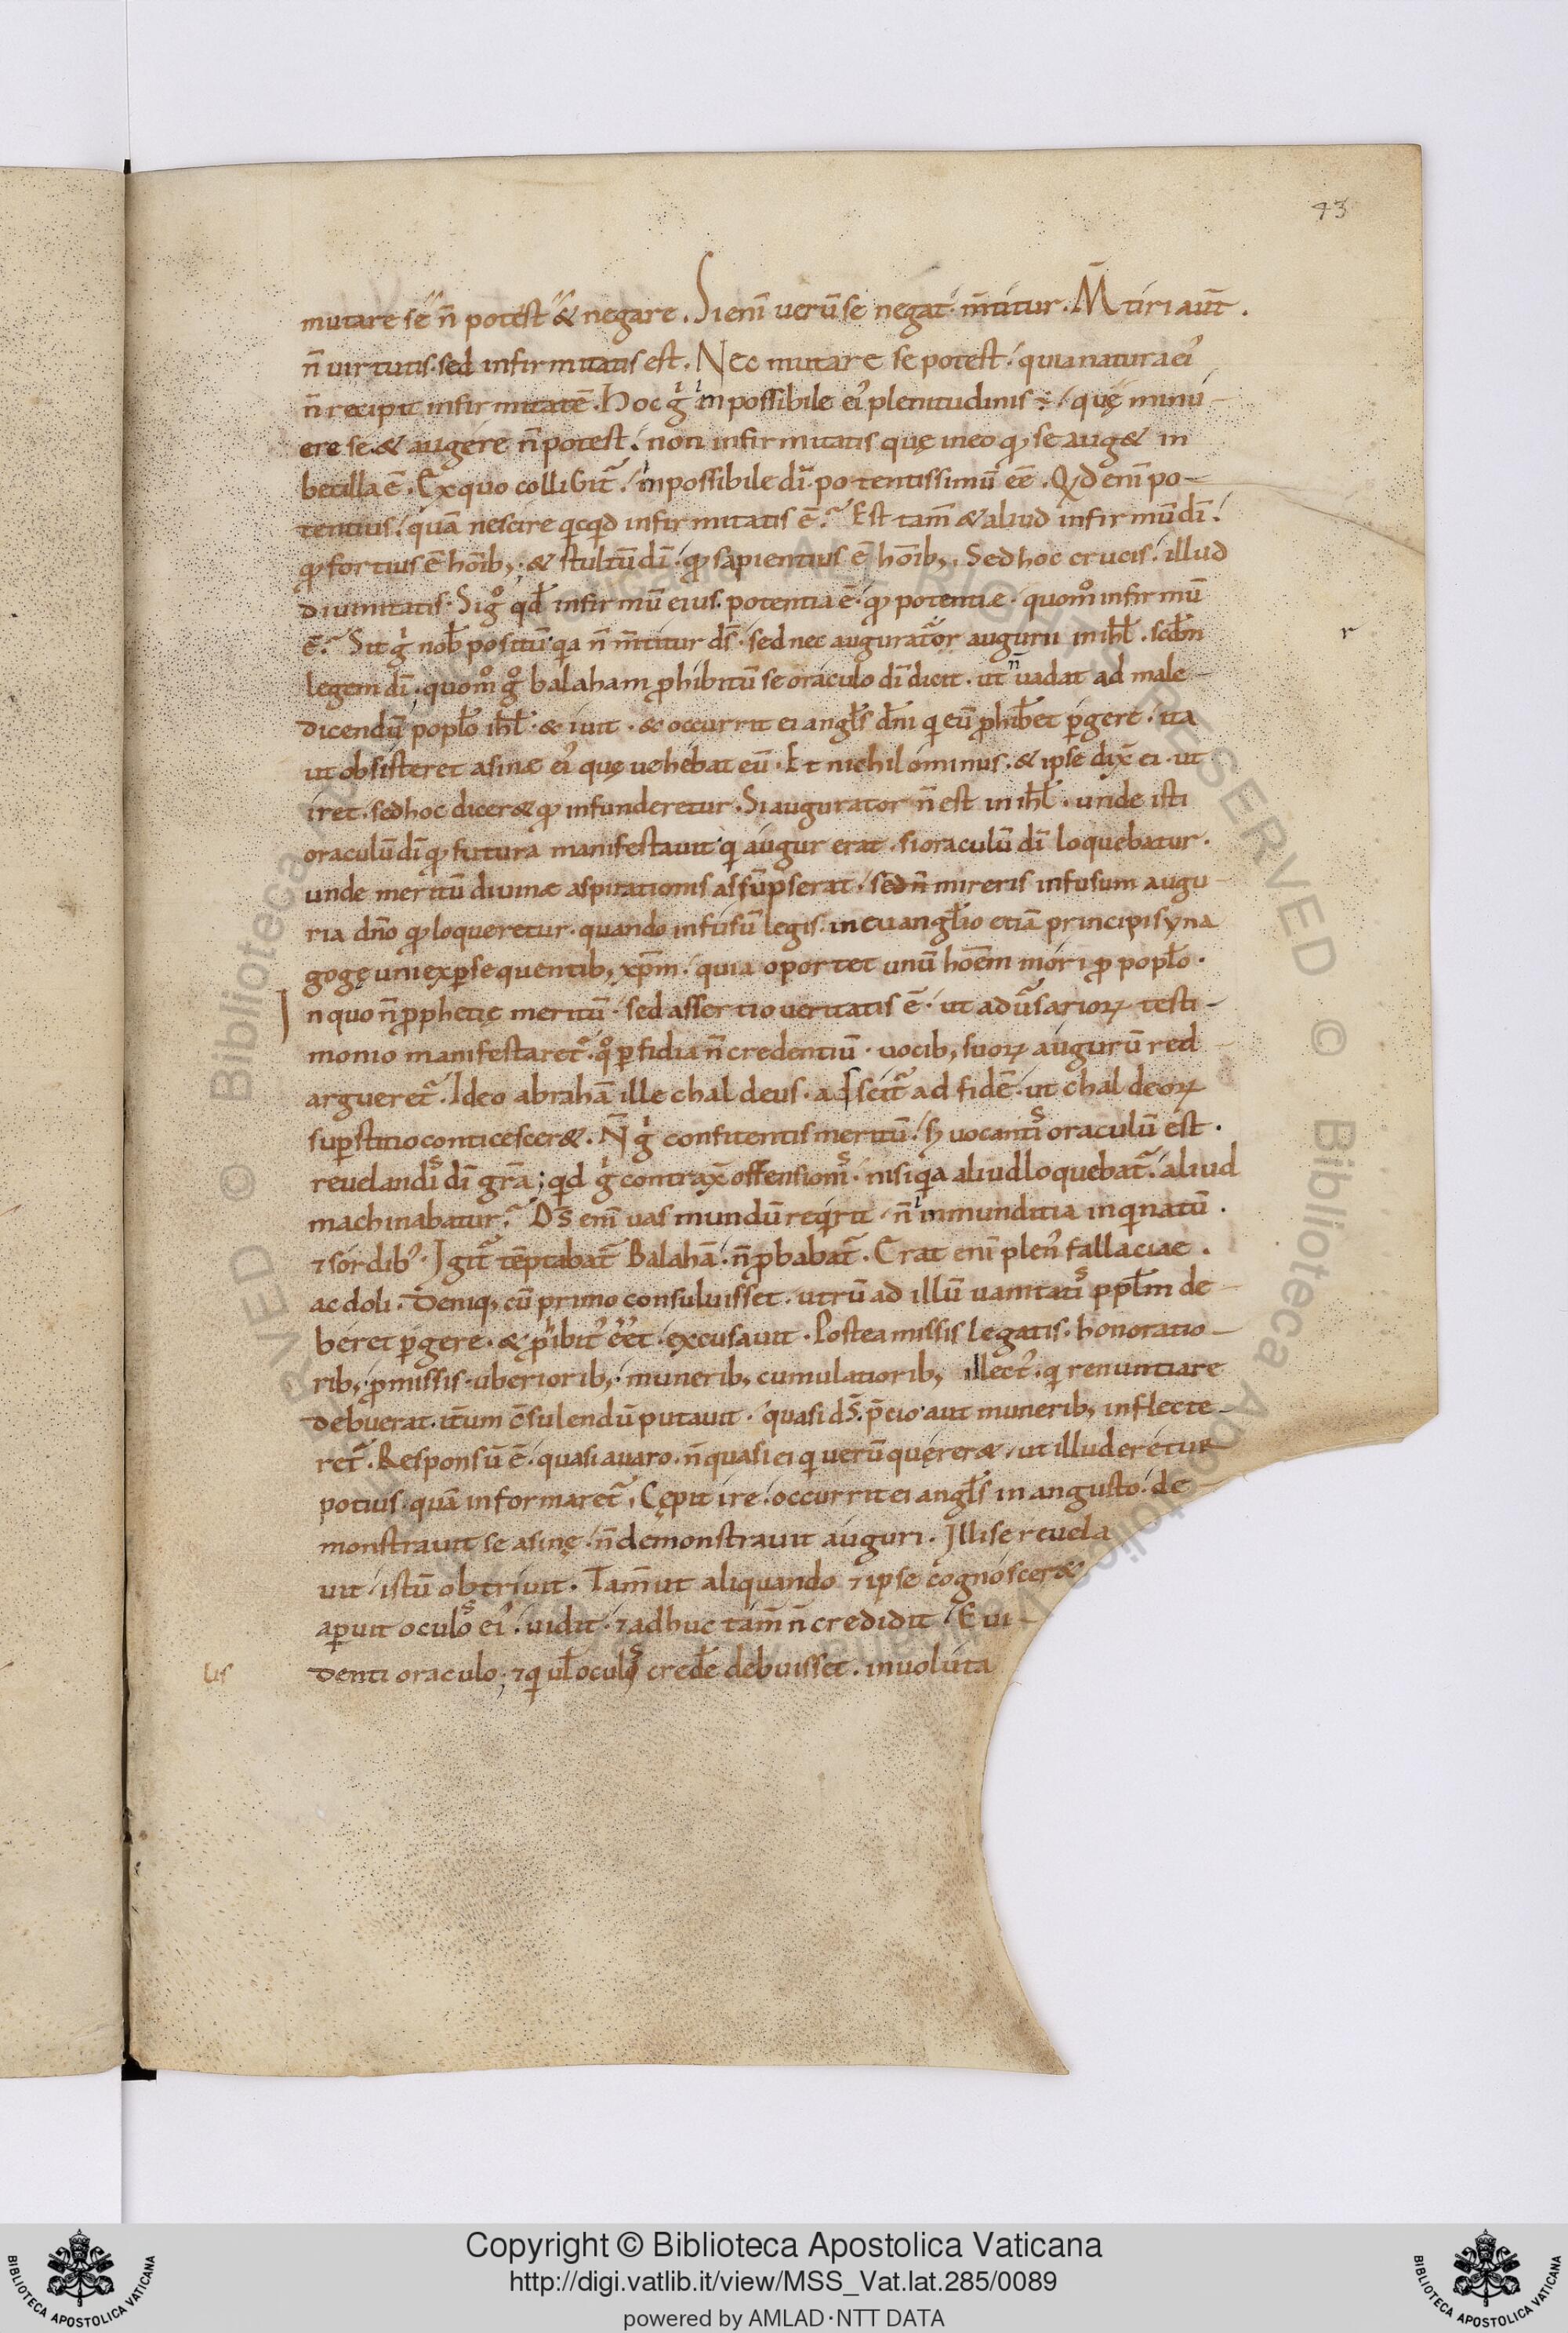 43
mutare se n̄ potest & negare. Si enī uerū se negat· m̄titur. M̄tiri aut̄.
n̄ uirtutis· sed infirmitatis est. Nec mutare se potest· quia natura ei᾽
n̄ recipit infirmitatē. Hoc gͥ inpossibile ei᾽ plenitudinis ÷· quę minu-
ere se· & augere n̄ potest· non infirmitatis quę in eo qđ se aug& in
becilla ē. Ex quo colligit᷑· inpossibile dī· potentissimū eē. Qđ enī po-
tentius· quā nescire qcqđ infirmitatis ē? Est tam̄ & aliud infirmū dī·
qđ fortius ē hoīb;· & stultū dī· qđ sapientius ē hoīb;· Sed hoc crucis· illud
diuinitatis· Si gͦ qđ infirmū eius· potentia ē· qđ potentiæ· quomͦ infirmū
ē? Sit gͥ nob̄ positū· qa n̄ m̄titur ds̄· sed nec augurator augurii in ihl̄· scđm
legem dī· quomͦ gͦ balaham ꝓhibitū se oraculo dī dicit· ut n̄ uadat ad male-
dicendū popl̄o ihl̄· & iuit· & occurrit ei angl̄s dn̄i qi eū ꝓhib̄et ꝑgere· ita
ut obsisteret asinæ ei᾽ quę uehebat eū· Et nichilominus· & ipse dix̄ ei· ut
iret· sed hoc dicer& qđ infunderetur. Si augurator n̄ est in ihl̄· unde isti
oraculū dī qđ futura manifestauit· qi augur erat· si oraculū dī loquebatur·
unde meritū diuinæ aspirationis assūpserat· sed n̄ mireris infusum augu-
ria dn̄o qđ loqueretur· quando infusū legis· in euangl̄io etiā principi syna
gogę uni ex ꝑsequentib; xp̄m· quia oportet unū hoēm mori ꝓ popl̄o·
In quo n̄ ꝓphetię meritū· sed assertio ueritatis ē· ut aduersarioꝝ testi-
monio manifestaret᷑· qͦ ꝑfidia n̄ credentiū· uocib; suoꝝ augurū red
argueret᷑· Ideo abrahā ille chaldeus· adscit᷑ ad fidē· ut chaldeoꝝ
suꝑstitio conticescer&. N̄ gͥ confitentis meritū· sꝫ uocantis oraculū est·
reuelandis dī gr̄a; qid gͥ contrax̄ offensionis· nisi qia aliud loquebat᷑· aliud
machinabatur? Ds̄ enī uas mundū reqirit· n̄ inmunditia inqinatū·
⁊ sordib᾽· Igit᷑ tēptabat᷑ Balahā· n̄ ꝓbabat᷑· Erat enī plen᾽ fallaciae·
ac doli· Deniq; cū primo consuluisset· utrū ad illū uanitatis ppl̄m de-
beret ꝑgere· & ꝓibit᾽ eēt· excusauit· Postea missis legatis· honoratio-
rib;· ꝓmissis· uberiorib;· munerib; cumulatiorib; illect᾽· qi renuntiare
debuerat· itūm c̄sulendū putauit· quasi ds̄· p̄cio· aut munerib; inflecte-
ret᷑· Responsū ē· quasi auaro· n̄ quasi ei qi uerū quęrer&· ut illuderetur
potius· quā informaret᷑· Cępit ire· occurrit ei angl̄s in angusto· de-
monstrauit se asinę· n̄ demonstrauit auguri· Illi se reuela
uit· istū obtriuit· Tam̄ ut aliquando ⁊ ipse cognoscer&
aꝑuit oculos ei᾽· uidit· ⁊ adhuc tam̄ n̄ credidit· Eui-
denti oraculo; ⁊ qi ul̄ oculis cred̄e debuisset· inuoluta
r
Copyright © Biblioteca Apostolica Vaticana
http://digi.vatlib.it/view/MSS_Vat.lat.285/0089
powered by AMLAD·NTT DATA
BIBLIOTECA APOSTOLICA VATICANA
BIBLIOTECA APOSTOLICA VATICANA